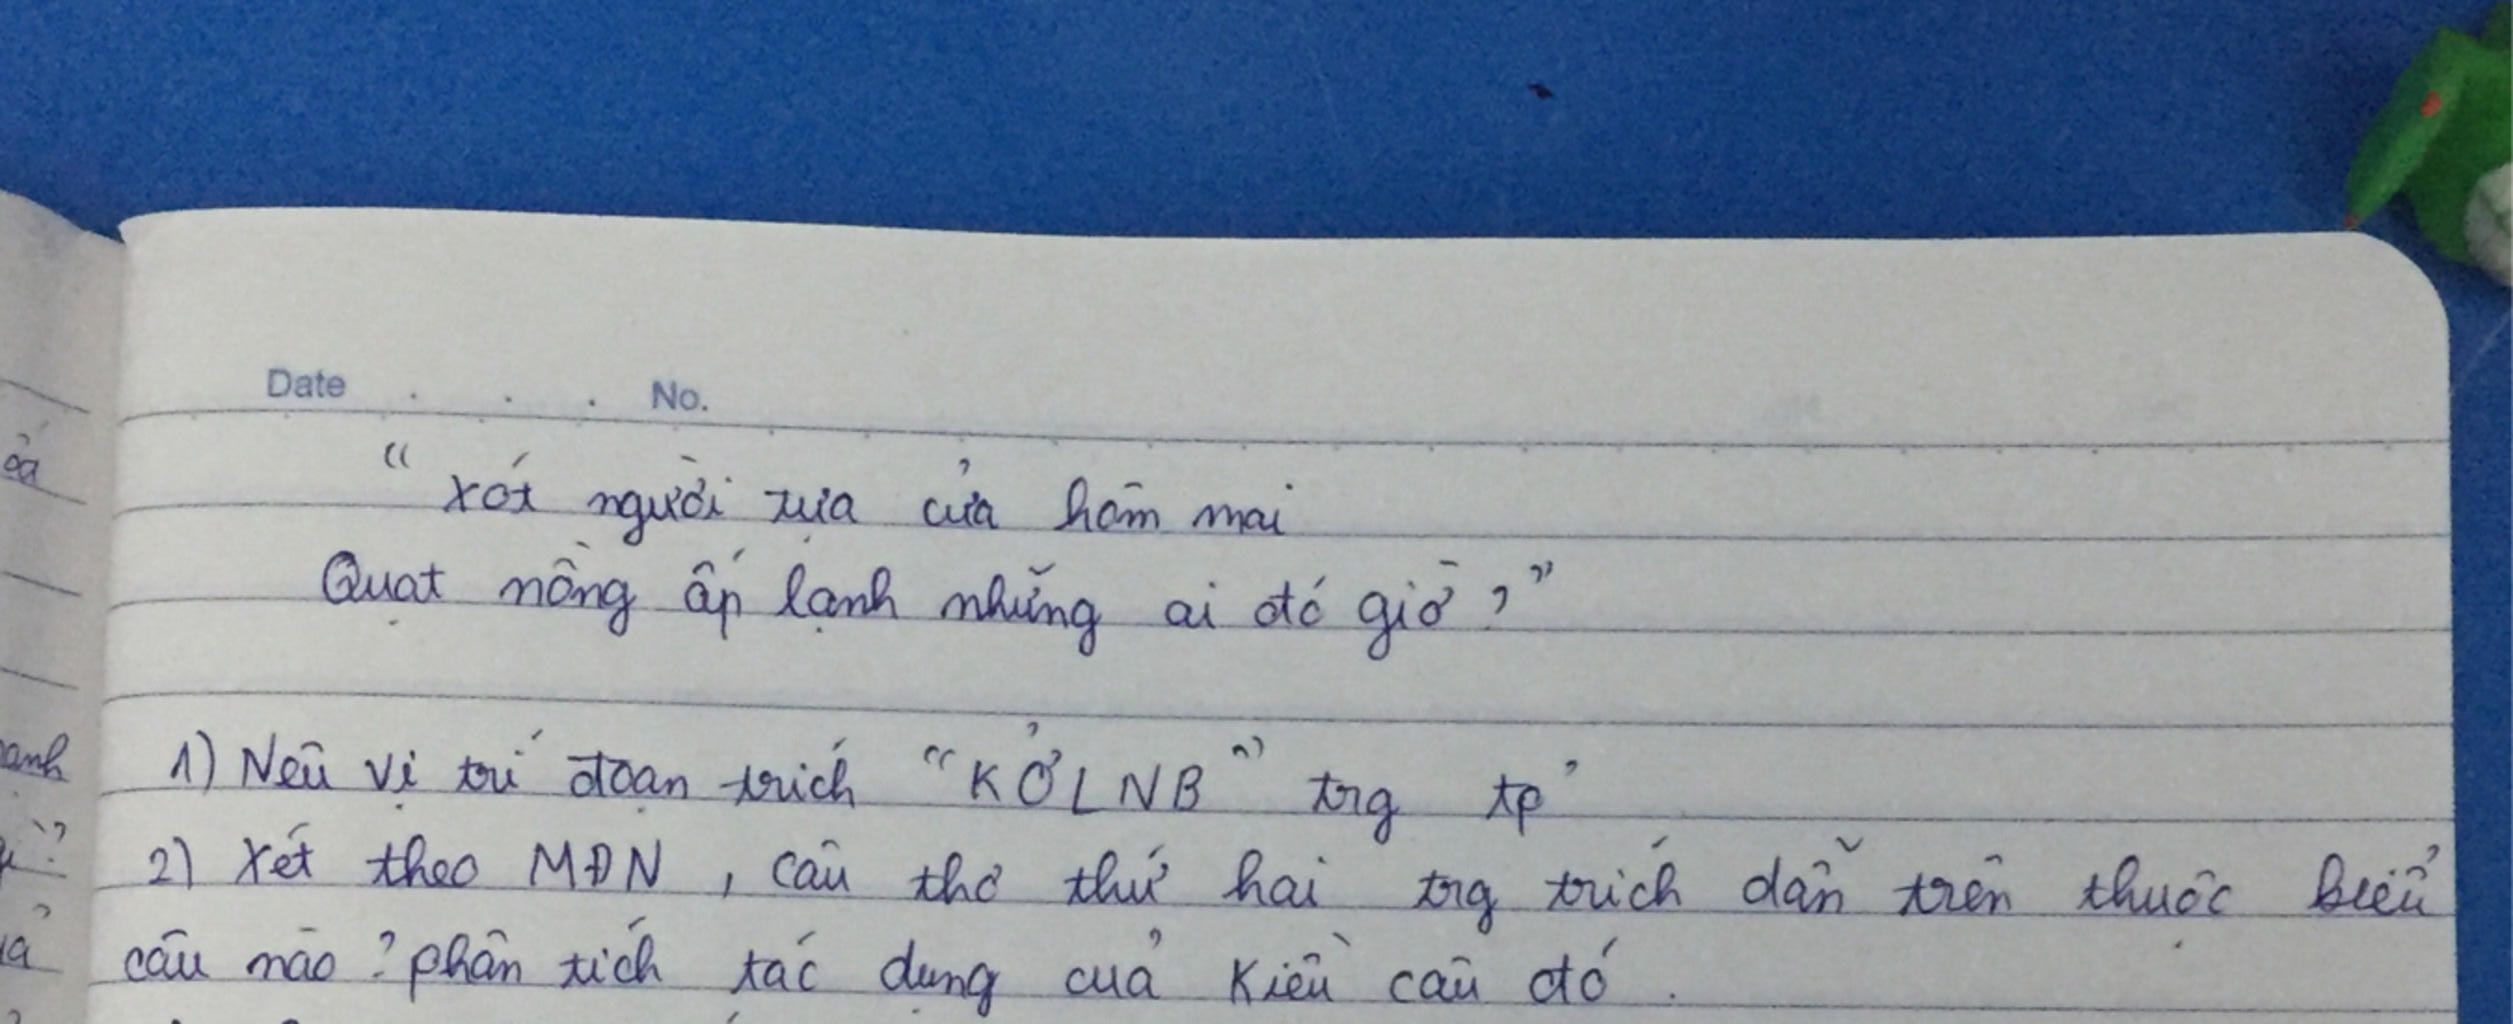 Date . . . No.
"xót người tựa cửa hôm mai
Quạt nồng ấp lạnh những ai đó giờ?"
1) Nêu vị trí đoạn trích "KỞLNB" trg tp'
2) Xét theo MĐN, câu thơ thứ hai trg trích dẫn trên thuộc kiểu
câu nào? phân tích tác dụng của kiểu câu đó.
anh